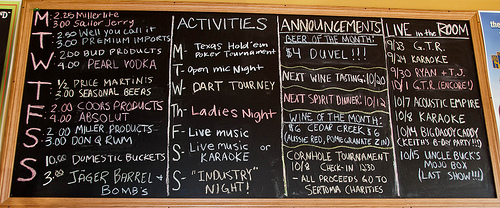 M: 2.25 Miller lite
3.00 Sailor Jerry
T: 2.50 Well you call it
3.00 PREMIUM IMPORTS
W: 2.00 BUD PRODUCTS
4.00 PEARL VODKA
T: 1/2 PRICE MARTINI'S
2.00 SEASONAL BEERS
F: 2.00 COORS PRODUCTS
4.00 ABSOLUT
S: 2.00 MILLER PRODUCTS
3.00 DON Q RUM
S: 10.00 DOMESTIC BUCKETS
3.00 JAGER BARREL +
BOMB'S
ACTIVITIES
M- Texas Hold'em
Poker Tournament
T- Open mic Night
W- DART TOURNEY
Th- Ladies Night
F- Live music
S- Live music or
KARAOKE
S- "INDUSTRY"
NIGHT!
ANNOUNCEMENTS
BEER OF THE MONTH:
$4 DUVEL!!!
NEXT WINE TASTING: 10/20
NEXT SPIRIT DINNER: 10/12
WINE OF THE MONTH:
$6 CEDAR CREEK $6
(AUSSIE RED, POMEGRANATE ZIN)
CORNHOLE TOURNAMENT
10/8 CHECK-IN 1230
- ALL PROCEEDS GO TO
SERTOMA CHARITIES
LIVE IN THE ROOM
9/23 G.T.R.
9/24 KARAOKE
9/30 RYAN + T.J.
10/1 G.T.R. (ENCORE!)
10/7 ACOUSTIC EMPIRE
10/8 KARAOKE
10/14 BIG DADDY CADDY
(KEITH'S B-DAY PARTY!!!)
10/15 UNCLE BUCK'S
MOJO BOX
(LAST SHOW!!!)
the